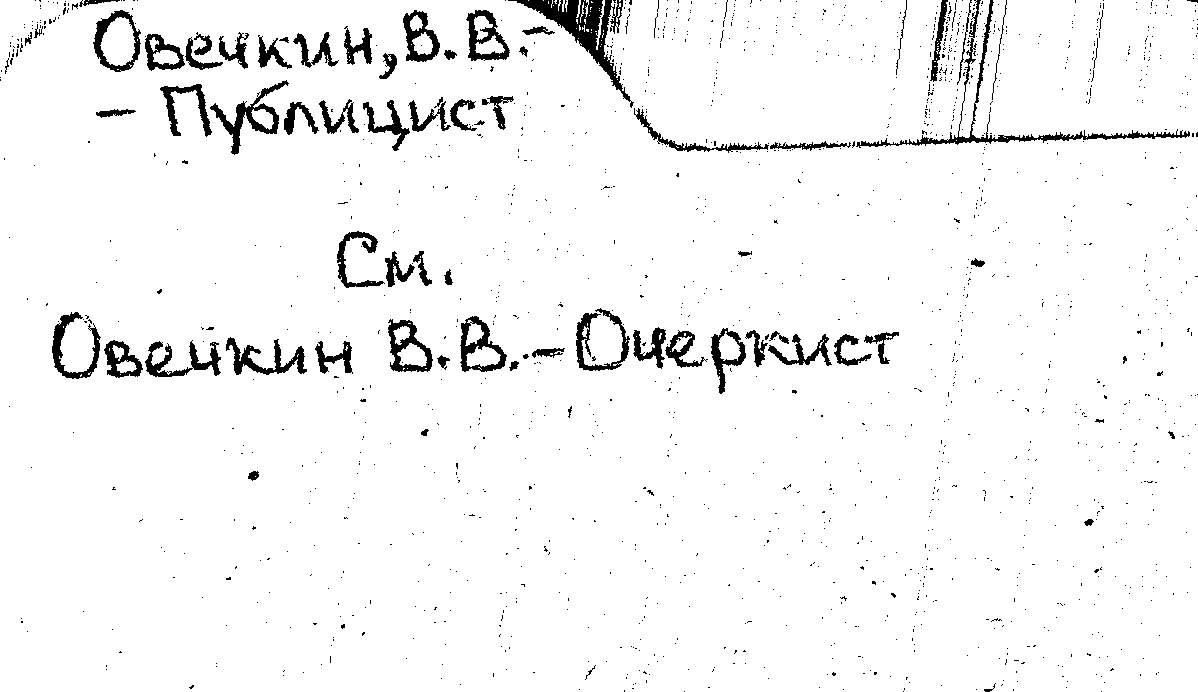 Овечкин, В.В.-
- Публицист
См.
Овечкин В.В.-Очеркист